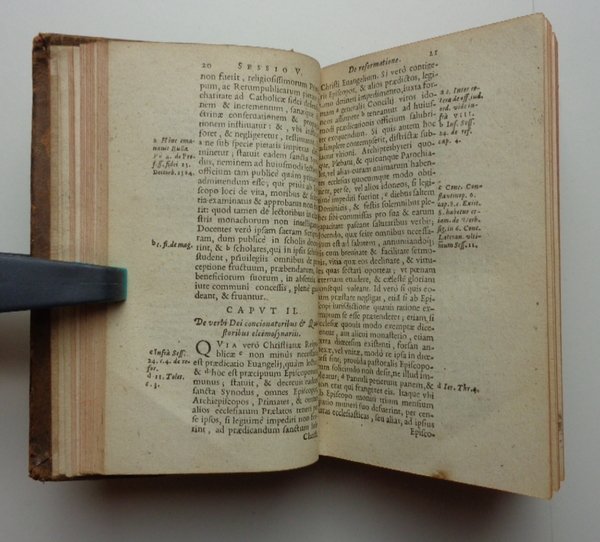 20 SESSIO V.
non fuerit, religiosissimorum Prin
pum, ac Rerumpublicarum pietati
charitate ad Catholicæ fidei defensi
nem & incrementum, sanæque
ctrinæ conseruationem & pro
nonem instituatur: &, vbi in
foret, & negligeretur, restituatur
a ne sub specie pietatis impietas
minetur, statuit eadem sancta
dus, neminem ad huiusmodi lecti
officium tam publicè quàm priuati
admittendum esse; qui priùs ab
scopo loci de vita, moribus & scie
tia examinatus & approbatus non
rit: quod tamen de lectoribus in clau
stris monachorum non intelligatur
Docentes verò ipsam sacram scriptu
ram, dum publicè in scholis docue
rint, & b scholares, qui in ipsis scholis
student, priuilegiis omnibus de per
ceptione fructuum, præbendarum, &
beneficiorum suorum, in absentia
iure communi concessis, plenè gau
deant, & fruantur.
CAPVT II.
De verbi Dei concionatoribus & Quæ
storibus eleëmosynariis.
QVIA verò Christianæ Reipu
blicæ c non minus necessaria
est prædicatio Euangelij, quàm lectio
& d hoc est præcipuum Episcoporum
munus, statuit, & decreuit eadem
sancta Synodus, omnes Episcopos,
Archiepiscopos, Primates, & omnes
alios ecclesiarum Prælatos teneri per
se ipsos, si legitimè impediti non fue
rint, ad prædicandum sanctum Iesu
Christi
a Hinc ema
nauit Bulla
Pij 4. de Pro
fess. fidei 13.
Decemb. 1564.
b l. fi. de mag.
c Infrà Sess.
24. c. 4. de re
for.
d 11. Tolet.
c. 3.
De reformatione. 21
Christi Euangelium. Si verò contige
rit Episcopos, & alios prædictos, legi
timo detineri impedimento, iuxta for
mam a generalis Concilij viros ido
neos assumere b teneantur ad huius
modi prædicationis officium salubri
ter exequendum. Si quis autem hoc
adimplere contempserit, districtæ sub
iaceat vltioni. Archipresbyteri quo
que, Plebani, & quicunque Parochia
les ecclesias quocumque modo obti
nent, per se, vel alios idoneos, si legi
timè impediti fuerint, c diebus saltem
Dominicis, & festis solemnibus plebes
sibi commissas pro sua & earum
capacitate pascant salutaribus verbis;
docendo, quæ scire omnibus necessa
rium est ad salutem, annunciandoque;
eis cum breuitate & facilitate sermo
nis, vitia, quæ eos declinare, & virtu
tes quas sectari oporteat; vt pœnam
æternam euadere, & cælestem gloriam
consequi valeant. Id verò si quis eo
rum præstare negligat, etiam si ab Epi
scopi iurisdictione quauis ratione ex
emptum se esse prætenderet, etiam si
ecclesiæ quouis modo exemptæ dice
rentur, aut alicui monasterio, etiam
extra diœcesim existenti, forsan an
nexæ, vel vnitæ, modò re ipsa in diœce
si sint, prouida pastoralis Episcopo
rum sollicitudo non desit, ne illud im
pleatur, d Paruuli petierunt panem, &
non erat qui frangeret eis. Itaque vbi
ab Episcopo moniti trium mensium
spatio muneri suo defuerint, per cen
suras ecclesiasticas, seu alias, ad ipsius
Episco-
a c. Inter ce
tera de off. iud.
ord. vide in-
frà VIII.
b Inf. Sess.
24. de ref.
cap. 4.
c Conc. Con-
stantinop. 6.
cap. 8. & Exiue.
§. habetur et-
iam de Verb.
sig. in 6. Conc.
Lateran. vlti-
mum Sess. 11.
d Ier. Thr. 4.